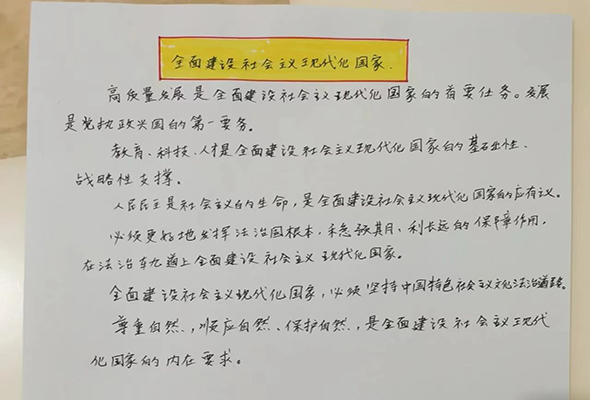 全面建设社会主义现代化国家.
高质量发展是全面建设社会主义现代化国家的首要任务。发展
是党执政兴国的第一要务。
教育、科技、人才是全面建设社会主义现代化国家的基础性、
战略性支撑。
人民民主是社会主义的生命，是全面建设社会主义现代化国家的应有义。
必须更好地发挥法治固根本、稳预期、利长远的保障作用，
在法治轨道上全面建设社会主义现代化国家。
全面建设社会主义现代化国家，必须坚持中国特色社会主义文化法治道路。
尊重自然、顺应自然、保护自然，是全面建设社会主义现代
化国家的内在要求。